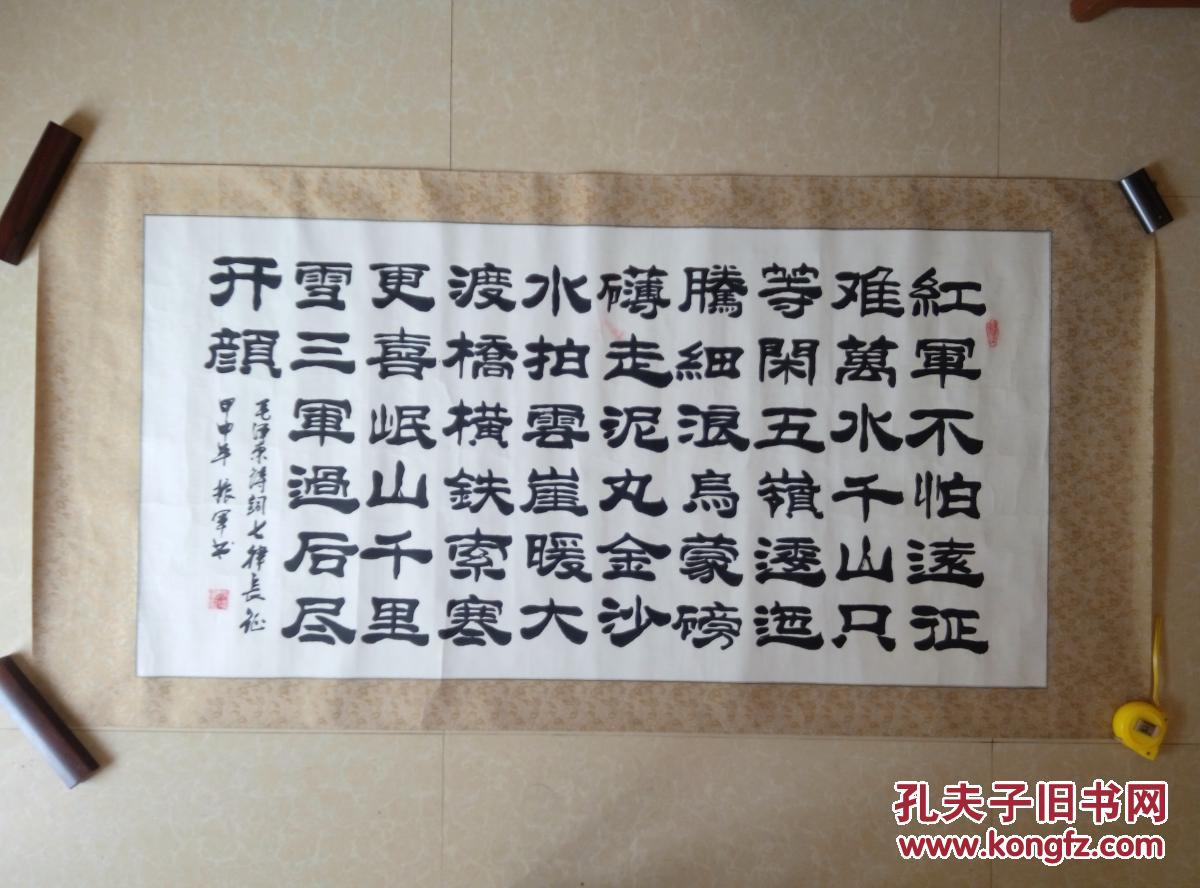 紅軍不怕遠征
难萬水千山只
等閑五嶺逶迤
騰細浪烏蒙磅
礴走泥丸金沙
水拍雲崖暖大
渡橋橫鉄索寒
更喜岷山千里
雪三軍過后尽
开顏
毛泽东诗詞七律長征
甲申年振軍书
孔夫子旧书网
www.kongfz.com